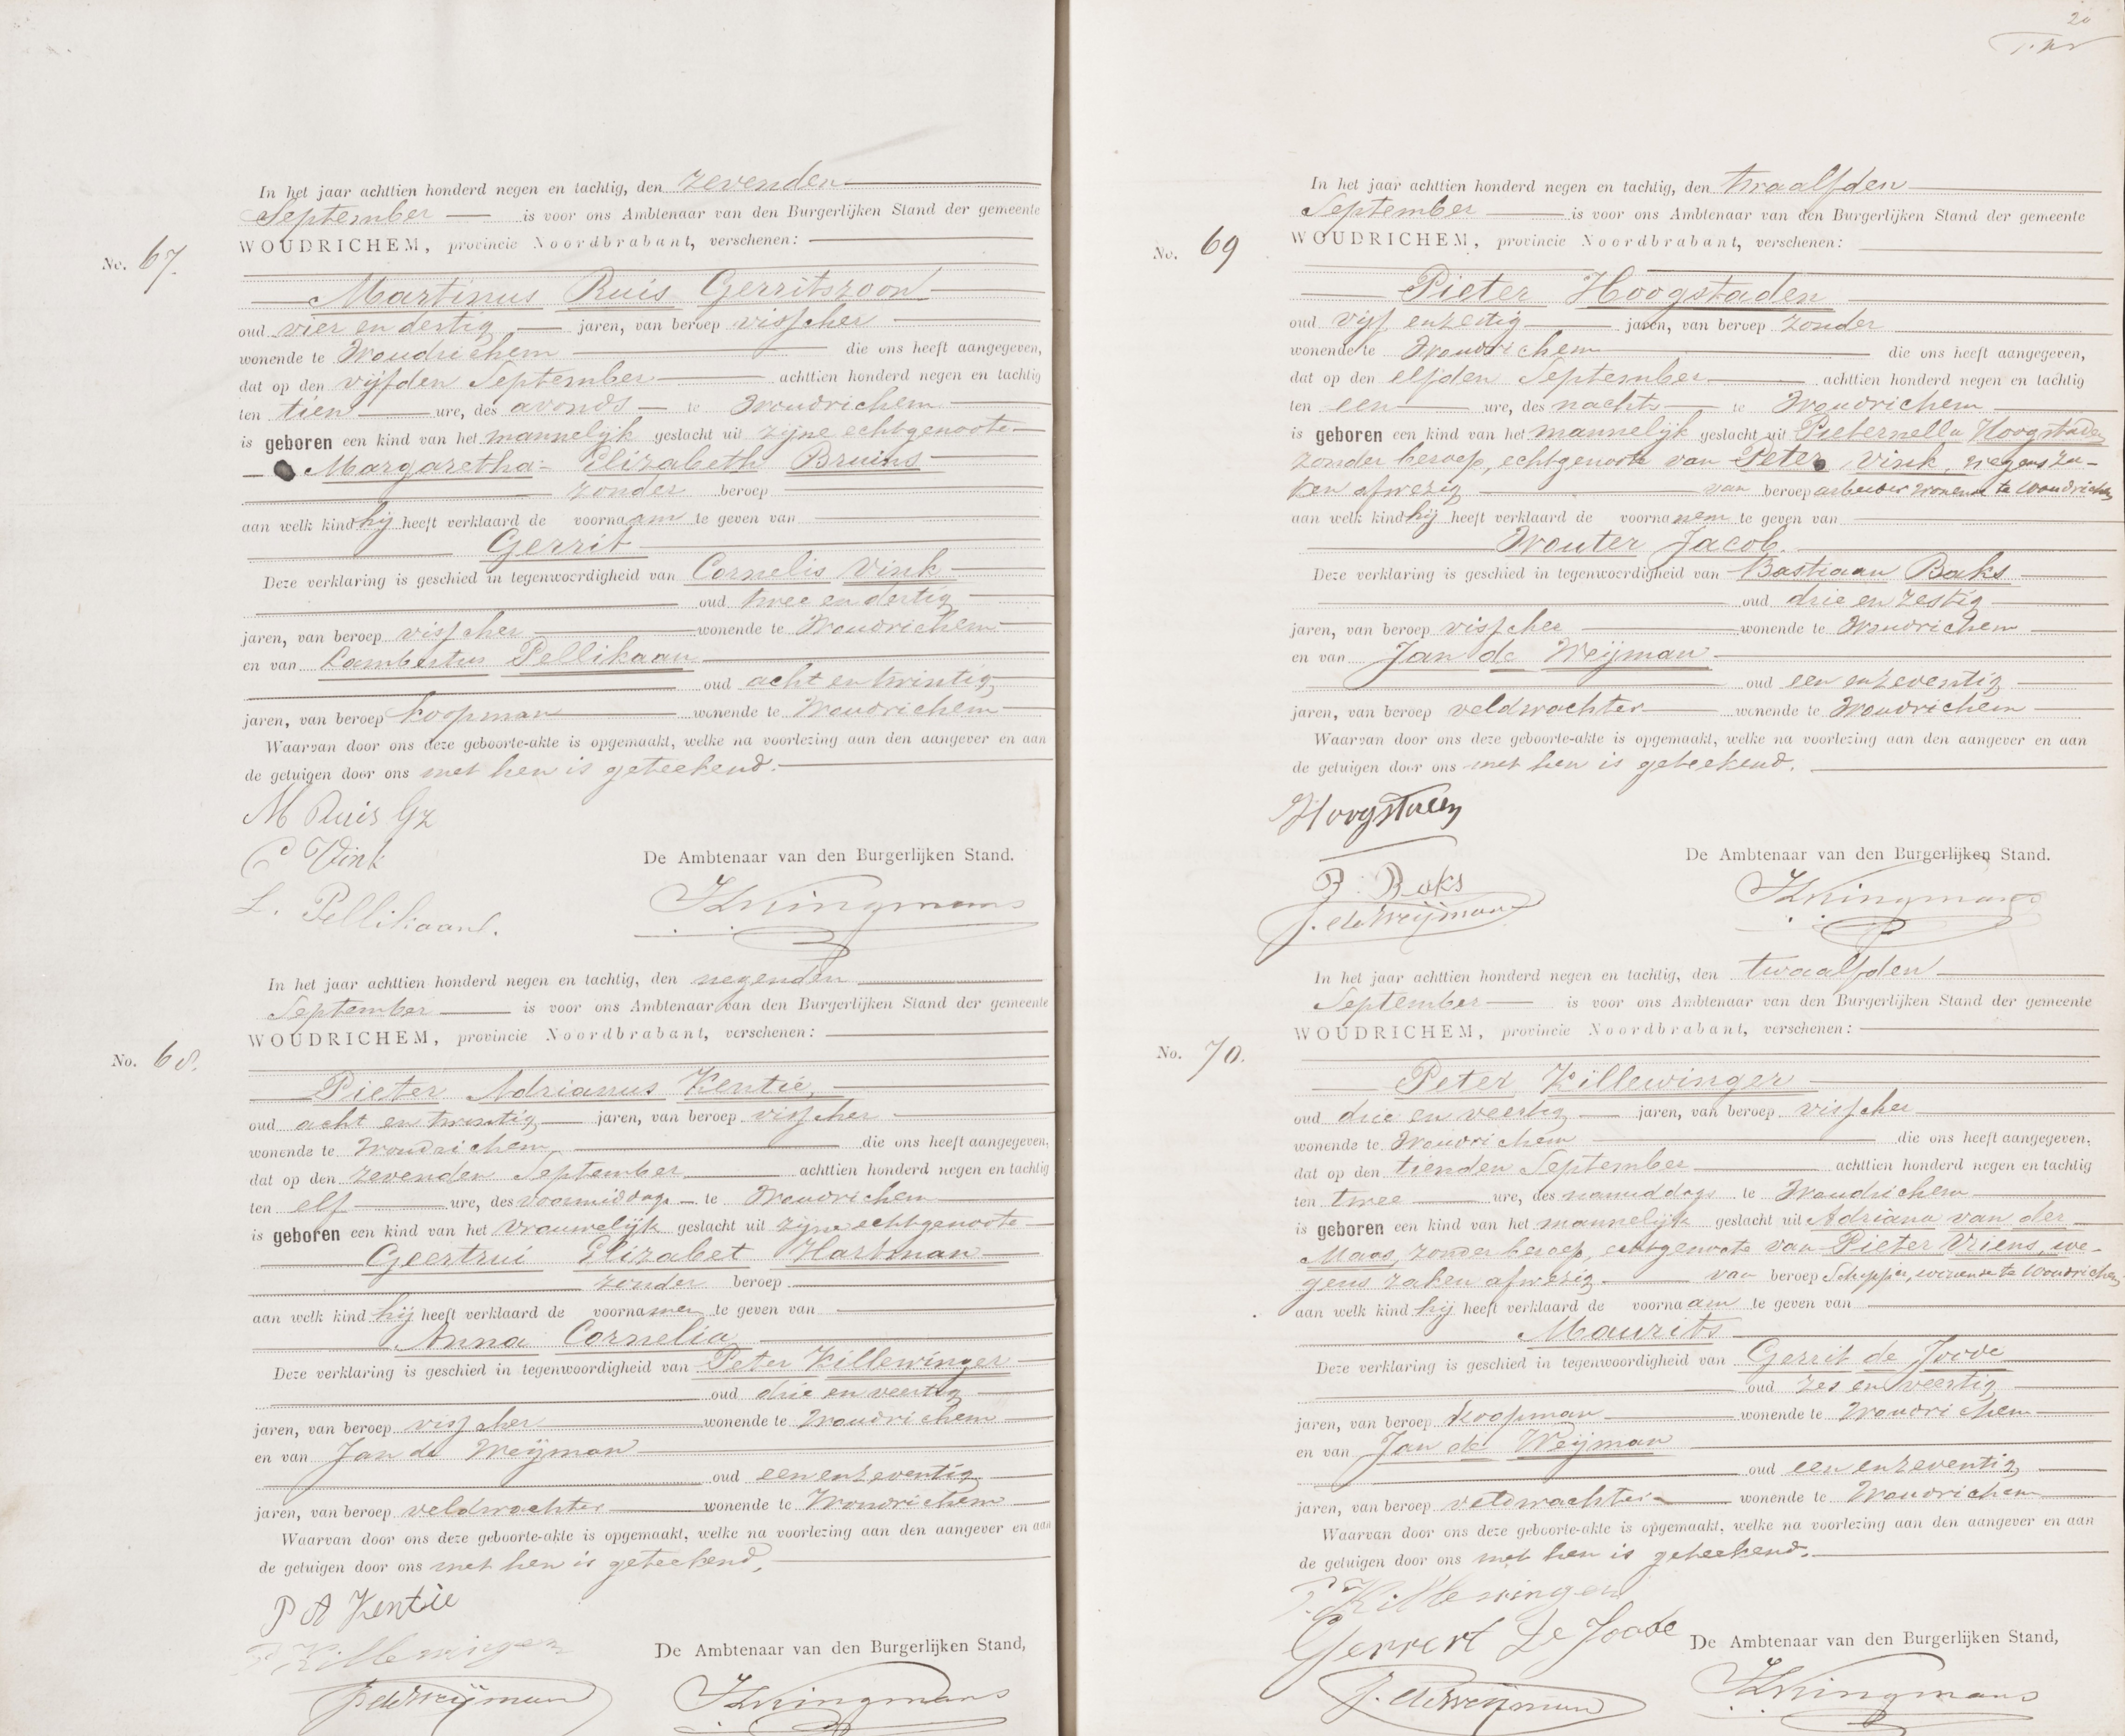 In het jaar achttien honderd negen en tachtig, den zevenden
September is voor ons Ambtenaar van den Burgerlijken Stand der gemeente
WOUDRICHEM, provincie Noordbrabant, verschenen:
No. 67.
Martinus Ruis Gerritszoon
oud vier en dertig jaren, van beroep visscher
wonende te Woudrichem die ons heeft aangegeven,
dat op den vijfden September achttien honderd negen en tachtig
ten tien ure, des avonds te Woudrichem
is geboren een kind van het mannelijk geslacht uit zijne echtgenoote
Margaretha Elizabeth Bruins
zonder beroep
aan welk kind hij heeft verklaard de voornaam te geven van
Gerrit
Deze verklaring is geschied in tegenwoordigheid van Cornelis Vink
oud twee en dertig
jaren, van beroep visscher wonende te Woudrichem
en van Lambertus Pellikaan
oud acht en twintig
jaren, van beroep koopman wonende te Woudrichem
Waarvan door ons deze geboorte-akte is opgemaakt, welke na voorlezing aan den aangever en aan
de getuigen door ons met hen is geteekend.
M Ruis Gz
C Vink
De Ambtenaar van den Burgerlijken Stand.
L. Pellikaan.
In het jaar achttien honderd negen en tachtig, den negenden
September is voor ons Ambtenaar van den Burgerlijken Stand der gemeente
WOUDRICHEM, provincie Noordbrabant, verschenen:
No. 68.
Pieter Adrianus Kentie,
oud acht en twintig jaren, van beroep visscher
wonende te Woudrichem, die ons heeft aangegeven,
dat op den zevenden September achttien honderd negen en tachtig
ten elf ure, des voormiddags te Woudrichem
is geboren een kind van het vrouwelijk geslacht uit zijne echtgenoote
Geertrui Elizabet Hartman
zonder beroep
aan welk kind hij heeft verklaard de voornamen te geven van
Anna Cornelia
Deze verklaring is geschied in tegenwoordigheid van Peter Killewinger
oud drie en veertig
jaren, van beroep visscher wonende te Woudrichem
en van Jan de Weijman
oud een en zeventig
jaren, van beroep veldwachter wonende te Woudrichem
Waarvan door ons deze geboorte-akte is opgemaakt, welke na voorlezing aan den aangever en aan
de getuigen door ons met hen is geteekend,
P A Kentie
P Killewinger
De Ambtenaar van den Burgerlijken Stand,
J. de Weijman
20
In het jaar achttien honderd negen en tachtig, den twaalfden
September is voor ons Ambtenaar van den Burgerlijken Stand der gemeente
WOUDRICHEM, provincie Noordbrabant, verschenen:
No. 69
Pieter Hoogstaden
oud vijf en zestig jaren, van beroep zonder
wonende te Woudrichem die ons heeft aangegeven,
dat op den elfden September achttien honderd negen en tachtig
ten een ure, des nachts te Woudrichem
is geboren een kind van het mannelijk geslacht uit Pieternella Hoogstaden
zonder beroep, echtgenoote van Peter Vink, wegens za-
ken afwezig van beroep arbeider wonende te Woudrichem
aan welk kind hij heeft verklaard de voornamen te geven van
Wouter Jacob.
Deze verklaring is geschied in tegenwoordigheid van Bastiaan Baks
oud drie en zestig
jaren, van beroep visscher wonende te Woudrichem
en van Jan de Weijman
oud een en zeventig
jaren, van beroep veldwachter wonende te Woudrichem
Waarvan door ons deze geboorte-akte is opgemaakt, welke na voorlezing aan den aangever en aan
de getuigen door ons met hen is geteekend.
De Ambtenaar van den Burgerlijken Stand.
B. Baks
J. de Weijman
In het jaar achttien honderd negen en tachtig, den twaalfden
September is voor ons Ambtenaar van den Burgerlijken Stand der gemeente
WOUDRICHEM, provincie Noordbrabant, verschenen:
No. 70.
Peter Killewinger
oud drie en veertig jaren, van beroep visscher
wonende te Woudrichem die ons heeft aangegeven,
dat op den tienden September achttien honderd negen en tachtig
ten twee ure, des namiddags te Woudrichem
is geboren een kind van het mannelijk geslacht uit Adriana van der
Maas, zonder beroep, echtgenoote van Pieter Vriens, we-
gens zaken afwezig van beroep Schipper, wonende te Woudrichem
aan welk kind hij heeft verklaard de voornaam te geven van
Maurits
Deze verklaring is geschied in tegenwoordigheid van Gerrit de Joode
oud zes en veertig
jaren, van beroep koopman wonende te Woudrichem
en van Jan de Weijman
oud een en zeventig
jaren, van beroep veldwachter wonende te Woudrichem
Waarvan door ons deze geboorte-akte is opgemaakt, welke na voorlezing aan den aangever en aan
de getuigen door ons met hen is geteekend.
P. Killewinger
Gerrert de Joode
De Ambtenaar van den Burgerlijken Stand,
J. de Weijman